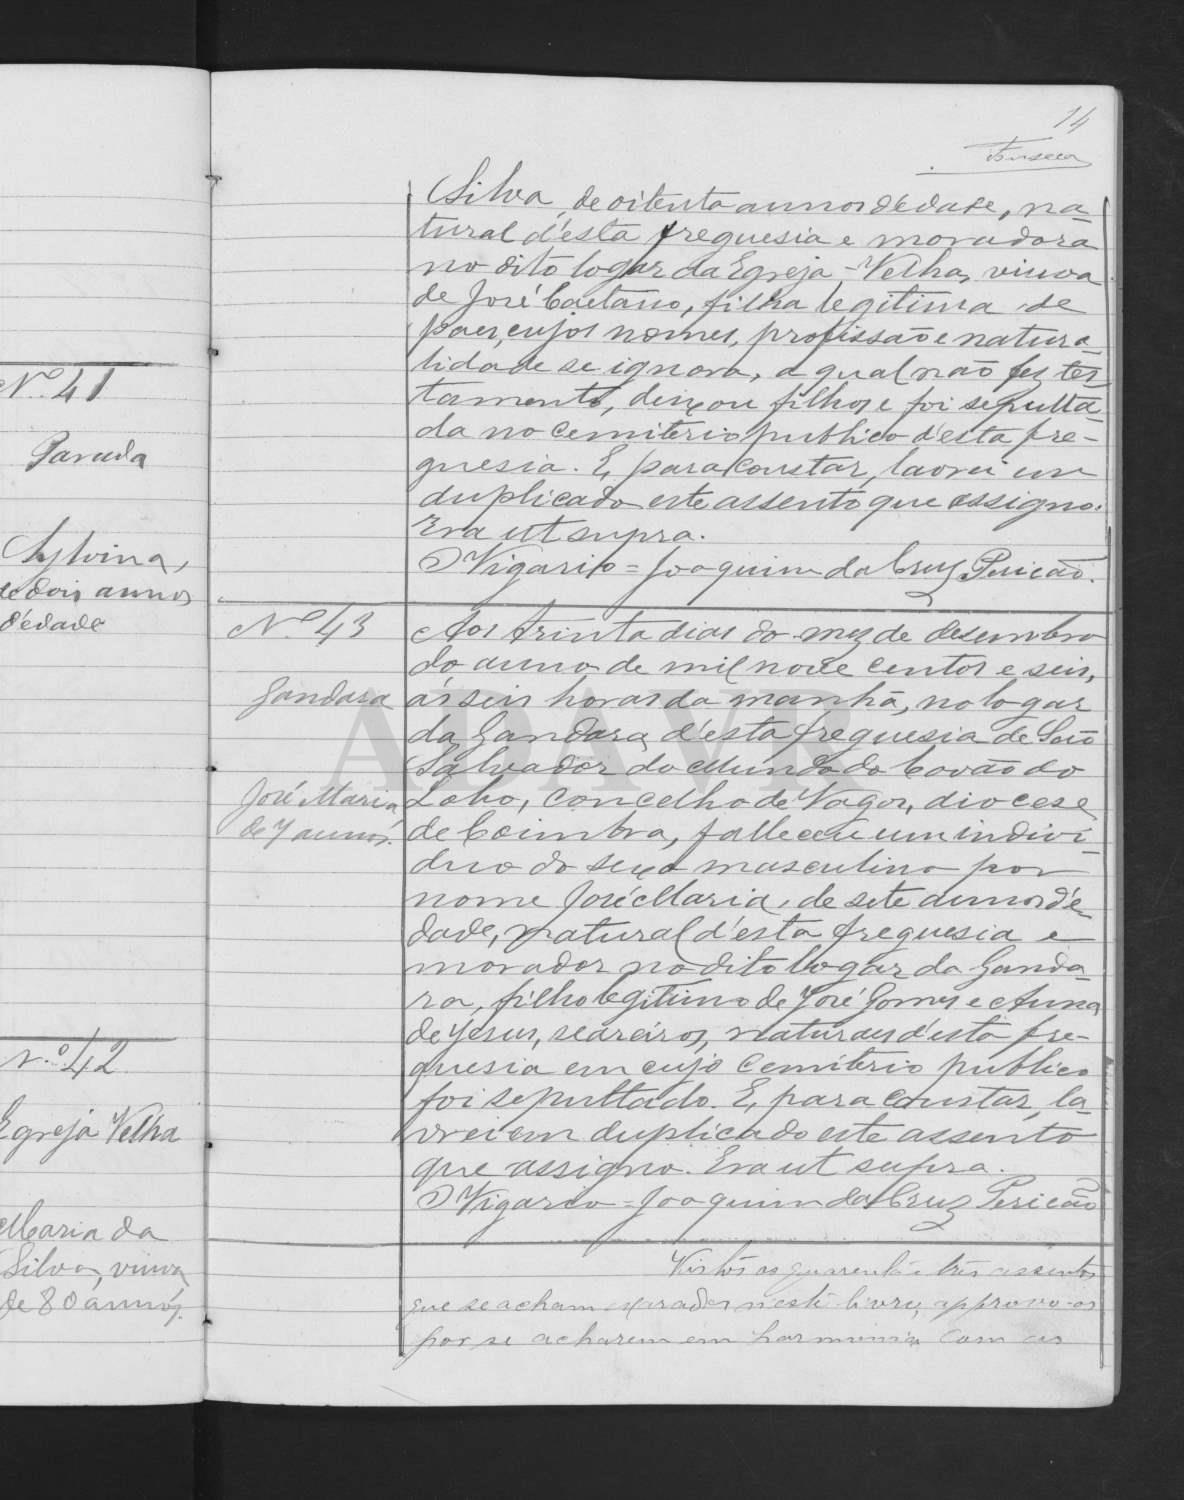 14
Fonseca
Nº 41
Parada
Sylvina,
de dois annos
d'edade
Nº 42
Egreja Velha
Maria da
Silva, viuva
de 80 annos.
Silva, de oitenta annos d'edade, na-
tural d'esta freguesia e moradora
no dito logar da Egreja-Velha, viuva
de José Caetano, filha legitima de
paes, cujos nomes, profissão e natura-
lidade se ignora, a qual não fez tes-
tamento, deixou filhos e foi sepulta-
da no cemiterio publico d'esta fre-
guesia. E, para constar, lavrei em
duplicado este assento que assigno.
Era ut supra.
O Vigario = Joaquim da Cruz Pericão.
Nº 43
Gandara
José Maria,
de 7 annos.
Aos trinta dias do mez de desembro
do anno de mil nove centos e seis,
ás seis horas da manhã, no logar
da Gandara, d'esta freguesia de São
Salvador do Mundo do Covão do
Lobo, concelho de Vagos, diocese
de Coimbra, falleceu um indivi-
duo do sexo masculino por
nome José Maria, de sete annos d'e-
dade, natural d'esta freguesia e
morador no dito logar da Ganda-
ra, filho legitimo de José Gomes e Anna
de Jesus, seareiros, naturaes d'esta fre-
guesia em cujo cemiterio publico
foi sepultado. E, para constar, la-
vrei em duplicado este assento
que assigno. Era ut supra.
O Vigario = Joaquim da Cruz Pericão
Vistos os quarenta e três assentos
que se acham exarados n'este livro, approvo-os
por se acharem em harmonia com as
ADAVR